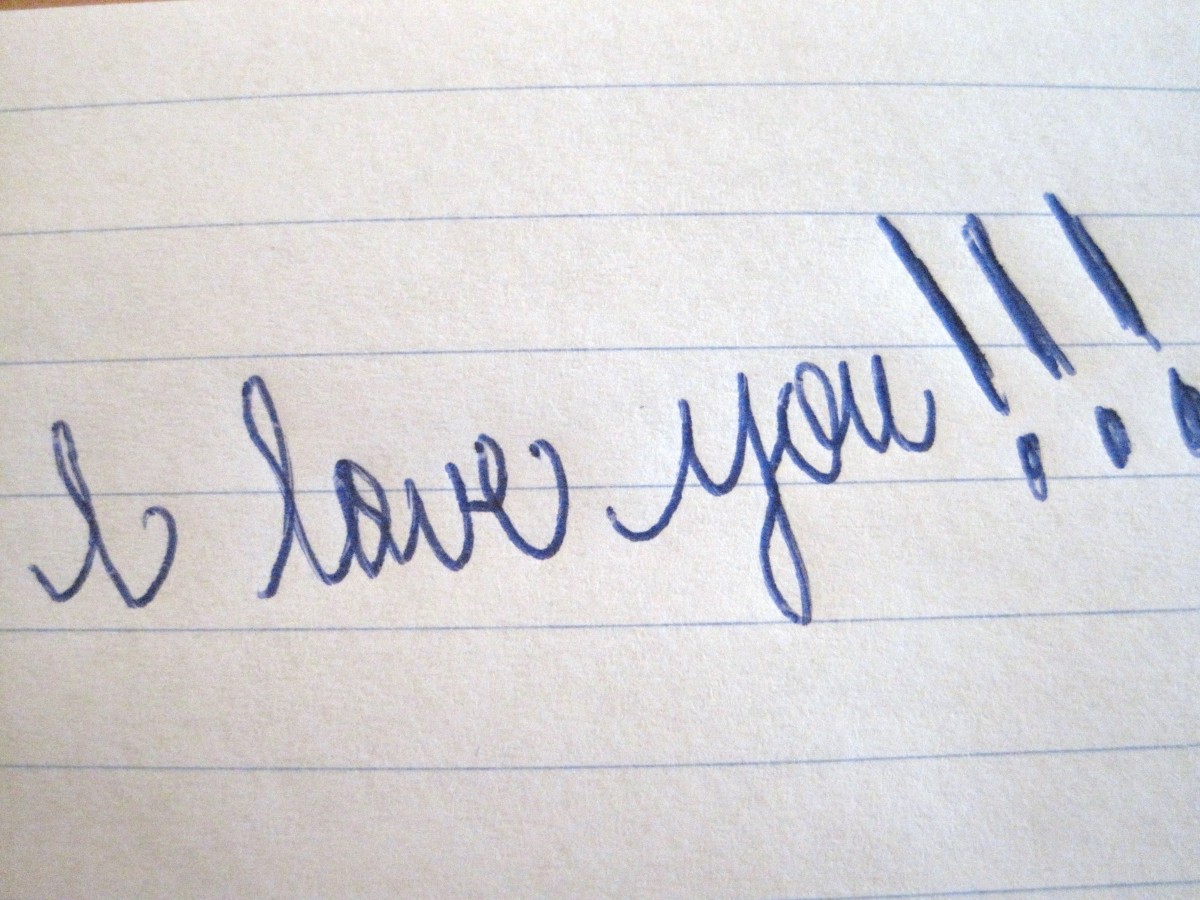 I love you!!!